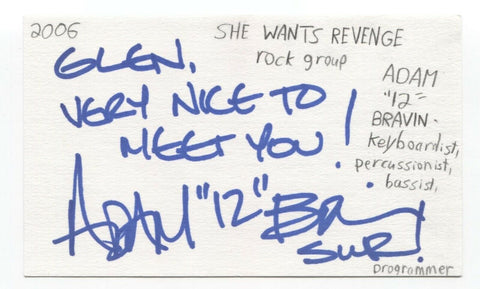 2006
SHE WANTS REVENGE
rock group
GLEN,
VERY NICE TO
MEET YOU!
ADAM "12" BRAV
SWR!
ADAM
"12"
BRAVIN-
Keyboardist,
percussionist,
bassist,
programmer